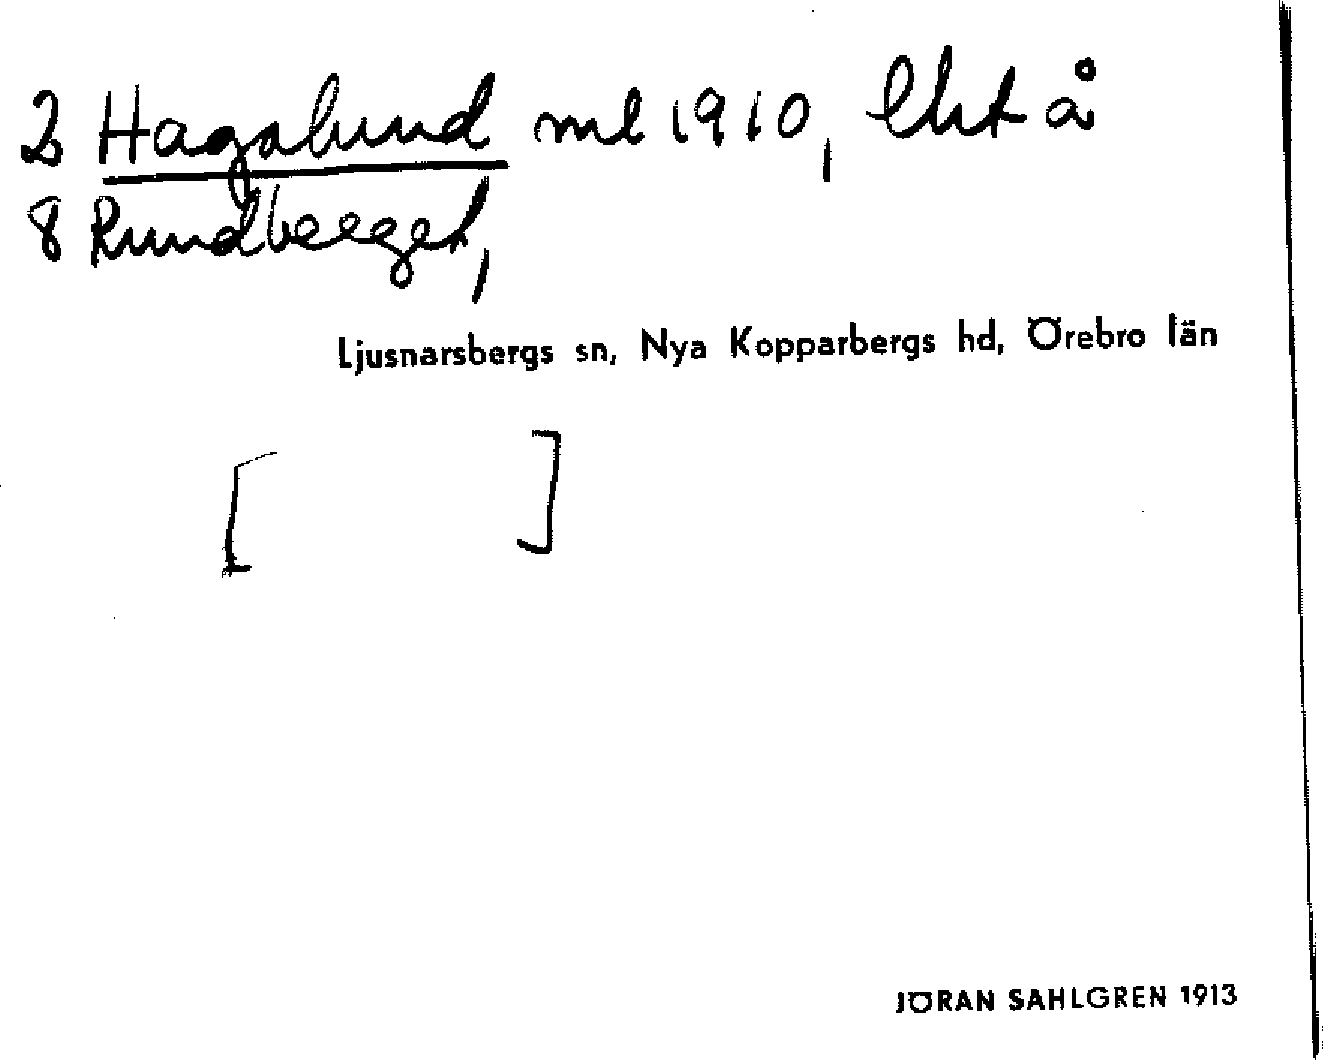 2 Hagalund ml 1910, lht å
8 Rundberget,
Ljusnarsbergs sn, Nya Kopparbergs hd, Örebro län
[ ]
JÖRAN SAHLGREN 1913